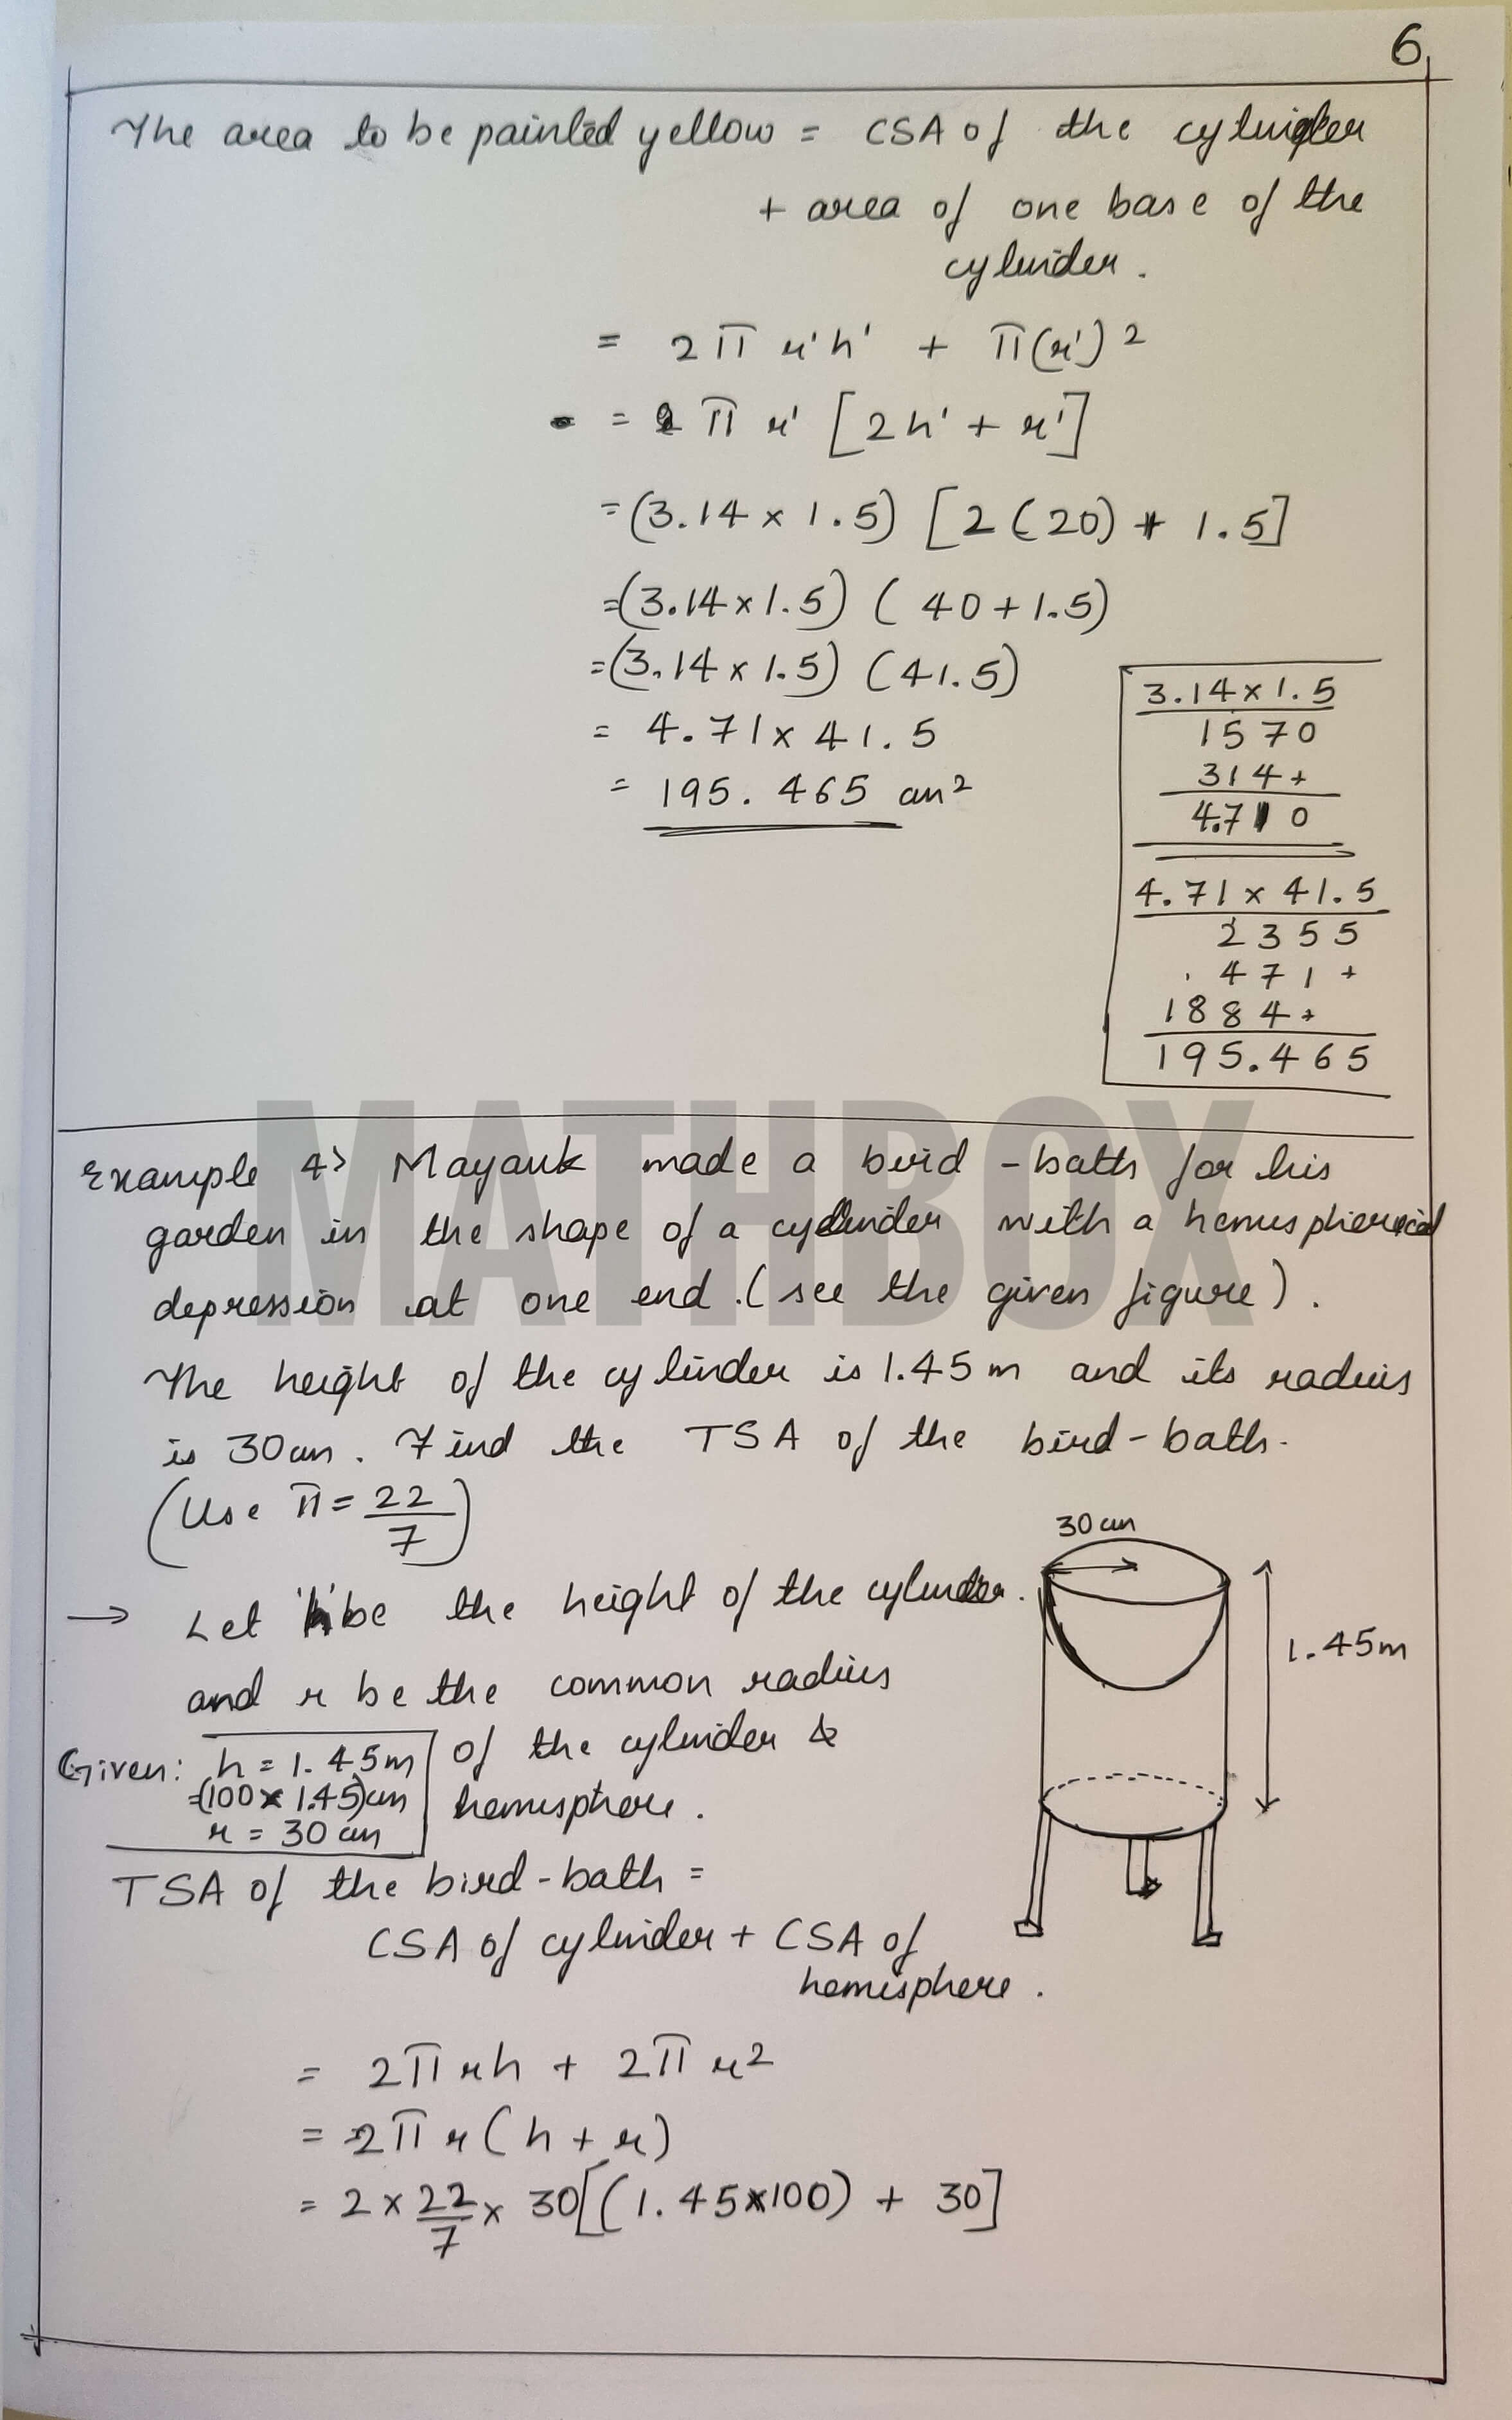 6
The area to be painted yellow = CSA of the cylinder
+ area of one base of the
cylinder.
= 2π r'h' + π(r')2
= π r' [2h' + r']
=(3.14 x 1.5) [2(20) + 1.5]
=(3.14x1.5) (40+1.5)
=(3.14x1.5) (41.5)
= 4.71x 41.5
= 195.465 cm2
3.14x1.5
1570
314+
4.710
4.71x41.5
2355
471+
1884+
195.465
MATHBOX
Example 4> Mayank made a bird-bath for his
garden in the shape of a cylinder with a hemispherical
depression at one end.(see the given figure).
The height of the cylinder is 1.45m and its radius
is 30cm. Find the TSA of the bird-bath.
(Use π = 22/7)
30cm
1.45m
→ Let 'h' be the height of the cylinder.
and r be the common radius
of the cylinder &
hemisphere.
Given: h = 1.45m
=(100x1.45)cm
r = 30cm
TSA of the bird-bath =
CSA of cylinder + CSA of
hemisphere.
= 2πrh + 2πr2
= 2πr(h+r)
= 2 x 22/7 x 30[(1.45x100) + 30]